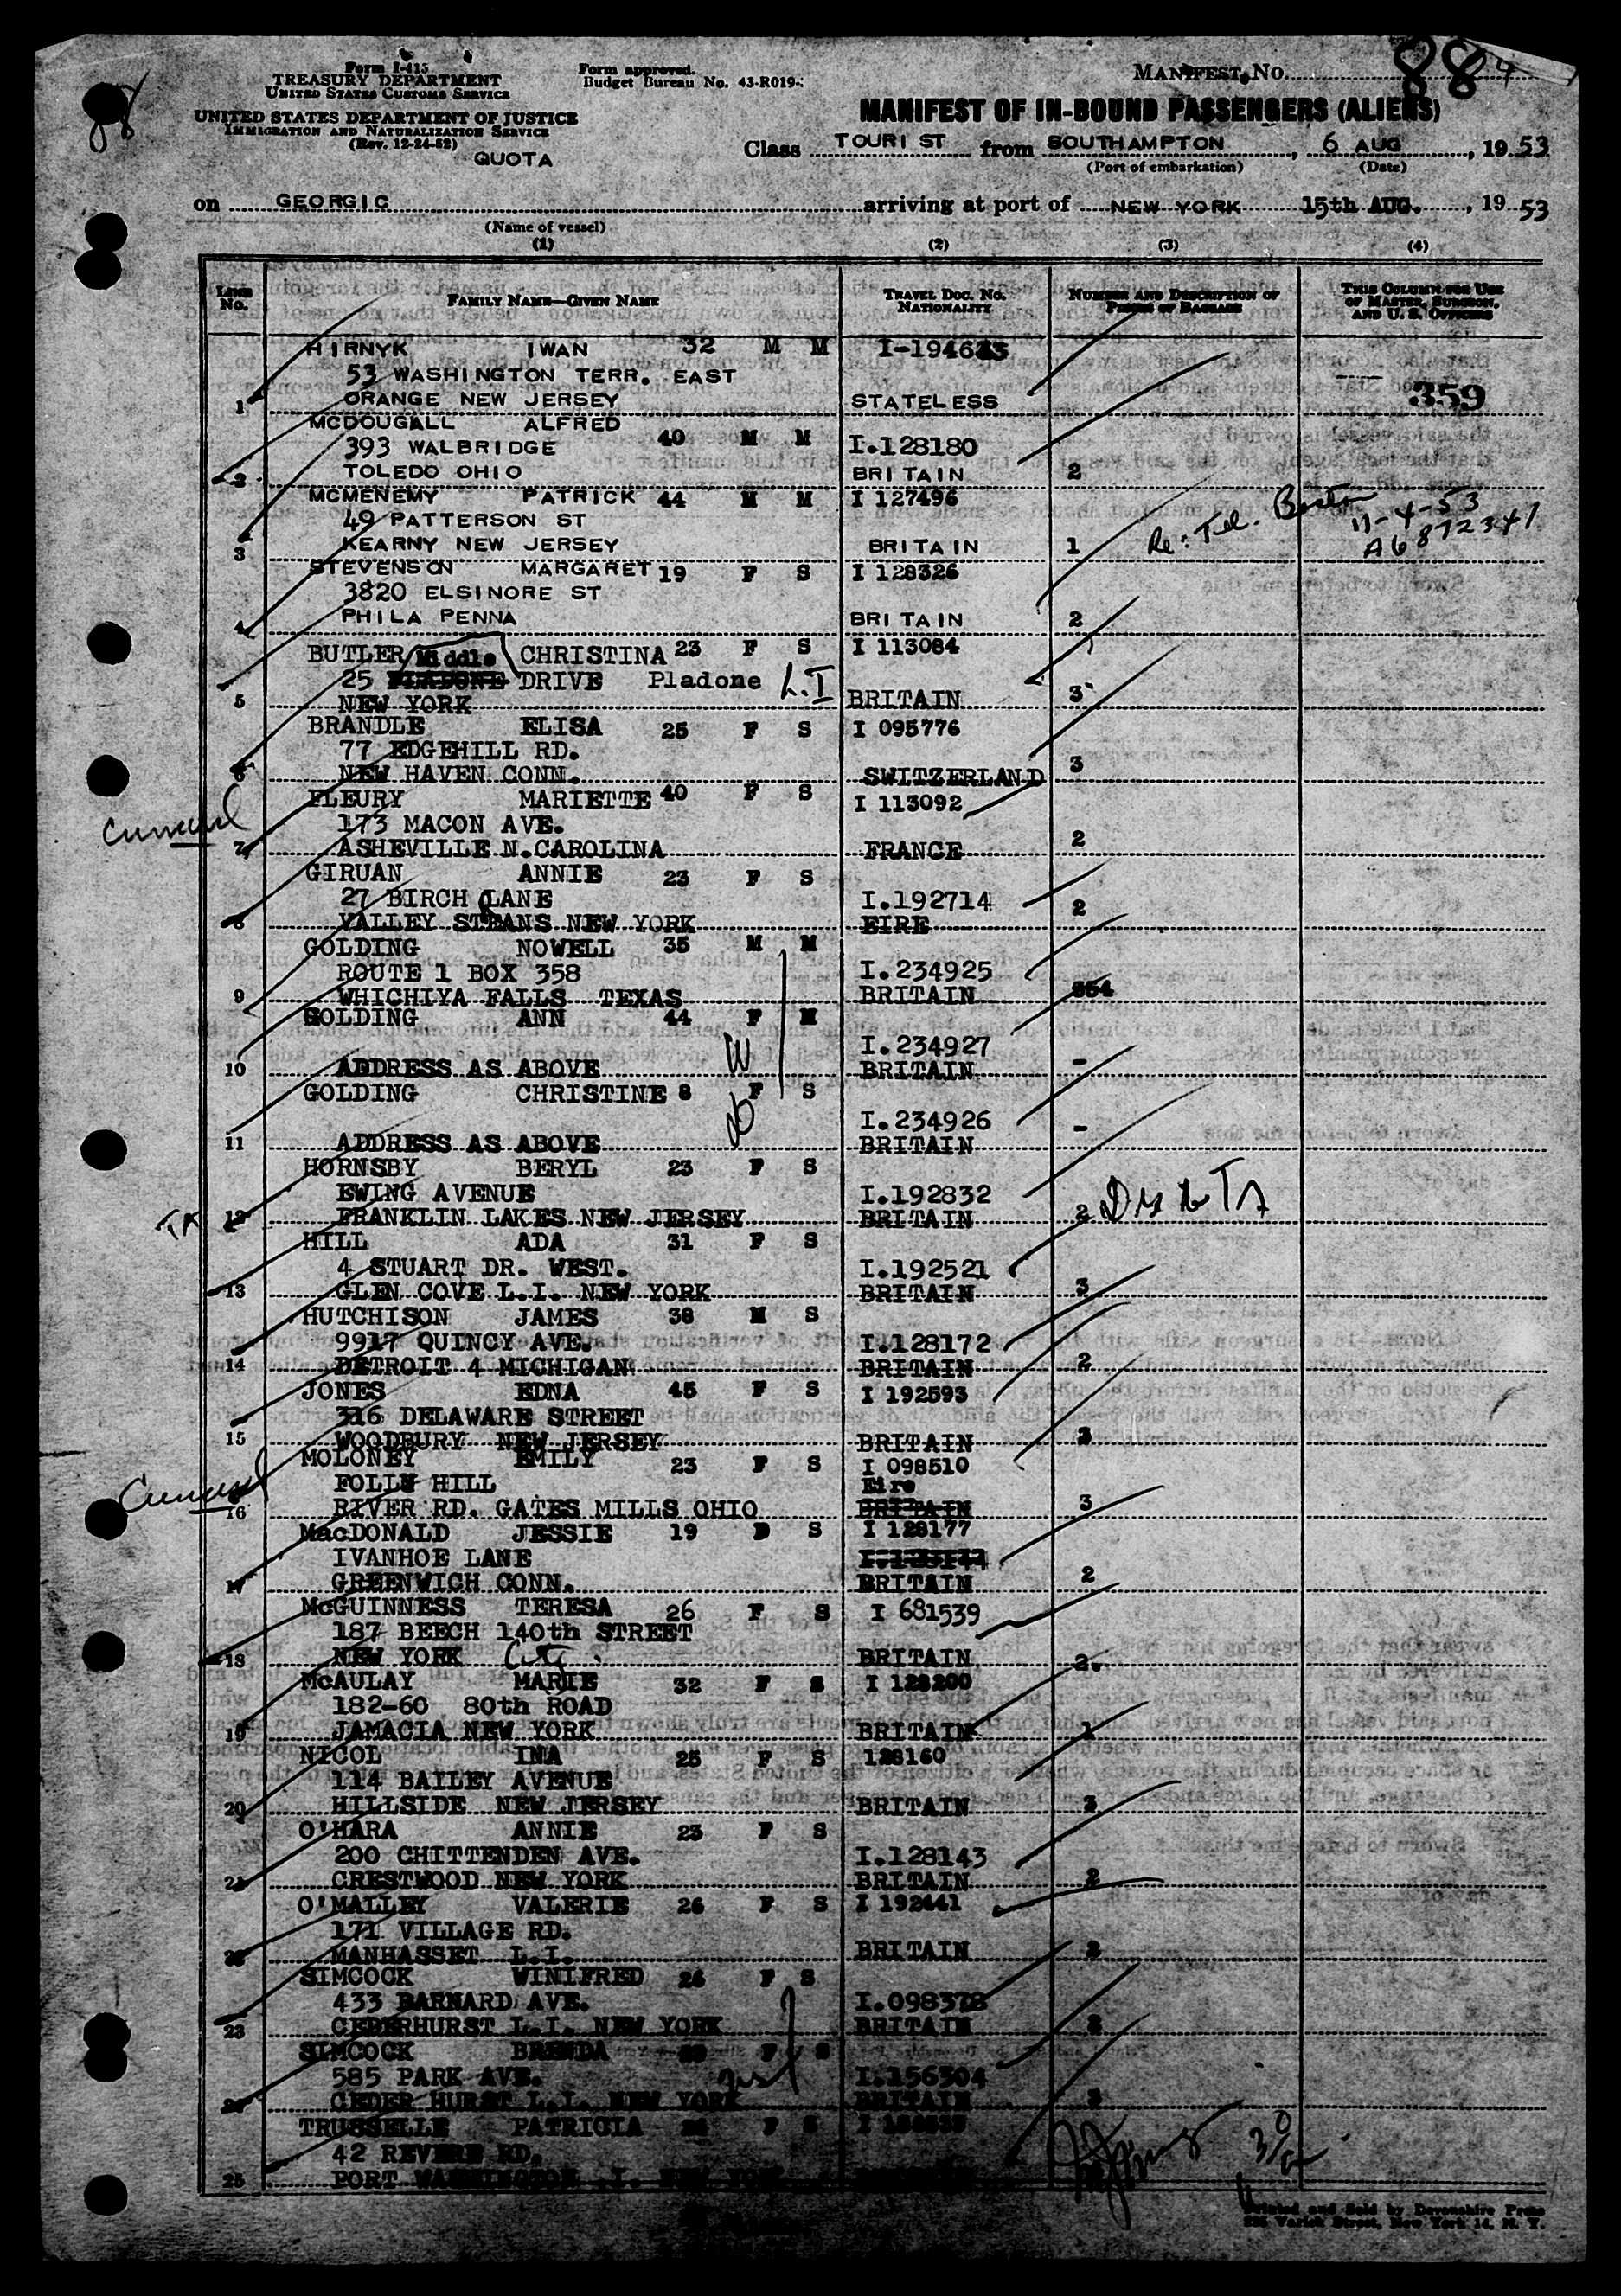 88 4
Form I-415
TREASURY DEPARTMENT
UNITED STATES CUSTOMS SERVICE
Form approved.
Budget Bureau No. 43-R019-
MANIFEST No.
UNITED STATES DEPARTMENT OF JUSTICE
IMMIGRATION AND NATURALIZATION SERVICE
(Rev. 12-24-52)
QUOTA
MANIFEST OF IN-BOUND PASSENGERS (ALIENS)
Class TOURIST from SOUTHAMPTON, 6 AUG, 1953
(Port of embarkation) (Date)
on GEORGIC arriving at port of NEW YORK 15th AUG., 1953
(Name of vessel)
(1) (2) (3) (4)
LINE No. FAMILY NAME—GIVEN NAME TRAVEL DOC. NO. NATIONALITY NUMBER AND DESCRIPTION OF PIECES OF BAGGAGE THIS COLUMN FOR USE OF MASTER, SURGEON, AND U. S. OFFICERS
HIRNYK IWAN 32 M M
53 WASHINGTON TERR. EAST 359
1 ORANGE NEW JERSEY STATELESS
MCDOUGALL ALFRED 40 M M
393 WALBRIDGE I.128180
2 TOLEDO OHIO BRITAIN 2
MCMENEMY PATRICK 44 M M I 127496
49 PATTERSON ST Re: Tel. 11-4-53
3 KEARNY NEW JERSEY BRITAIN 1 A6 872341
STEVENSON MARGARET 19 F S I 128326
3820 ELSINORE ST
4 PHILA PENNA BRITAIN 2
BUTLER Middle CHRISTINA 23 F S I 113084
25 PLADONE DRIVE Pladone L.I
5 NEW YORK BRITAIN 3
BRANDLE ELISA 25 F S I 095776
77 EDGEHILL RD.
6 NEW HAVEN CONN. SWITZERLAND 3
FLEURY MARIETTE 40 F S I 113092
173 MACON AVE.
7 ASHEVILLE N.CAROLINA FRANCE 2
GIRUAN ANNIE 23 F S
27 BIRCH LANE I.192714
8 VALLEY STEANS NEW YORK EIRE 2
GOLDING NOWELL 35 M M
ROUTE 1 BOX 358 I.234925
9 WHICHIYA FALLS TEXAS BRITAIN
GOLDING ANN 44 F M
I.234927
10 ADDRESS AS ABOVE BRITAIN -
GOLDING CHRISTINE 8 F S
I.234926
11 ADDRESS AS ABOVE BRITAIN -
HORNSBY BERYL 23 F S
EWING AVENUE I.192832
12 FRANKLIN LAKES NEW JERSEY BRITAIN 2
HILL ADA 31 F S
4 STUART DR. WEST. I.192521
13 GLEN COVE L.I. NEW YORK BRITAIN 3
HUTCHISON JAMES 38 M S
9917 QUINCY AVE. I.128172
14 DETROIT 4 MICHIGAN BRITAIN 2
JONES EDNA 45 F S I 192593
316 DELAWARE STREET
15 WOODBURY NEW JERSEY BRITAIN 3
MOLONEY EMILY 23 F S I 098510
FOLLY HILL Eire
16 RIVER RD. GATES MILLS OHIO BRITAIN 3
MacDONALD JESSIE 19 S I 128177
IVANHOE LANE
17 GREENWICH CONN. BRITAIN 2
McGUINNESS TERESA 26 F S I 681539
187 BEECH 140th STREET
18 NEW YORK City. BRITAIN 2.
McAULAY MARIE 32 F S I 128200
182-60 80th ROAD
19 JAMACIA NEW YORK BRITAIN 1
NICOL INA 25 F S 128160
114 BAILEY AVENUE
20 HILLSIDE NEW JERSEY BRITAIN
O'HARA ANNIE 23 F S
200 CHITTENDEN AVE. I.128143
21 CRESTWOOD NEW YORK BRITAIN 2
O'MALLEY VALERIE 26 F S I 192441
171 VILLAGE RD.
22 MANHASSET L.I. BRITAIN 2
SIMCOCK WINIFRED 26 F S
433 BARNARD AVE. I.098378
23 CEDERHURST L.I. NEW YORK BRITAIN
SIMCOCK BRENDA F S
585 PARK AVE. I.156304
24 CEDER HURST L.I. NEW YORK BRITAIN 3
TRUSSELLE PATRICIA F S
42 REVERE RD.
25 PORT WASHINGTON
Printed and Sold by Devonshire Press
Varick Street, New York 14, N. Y.